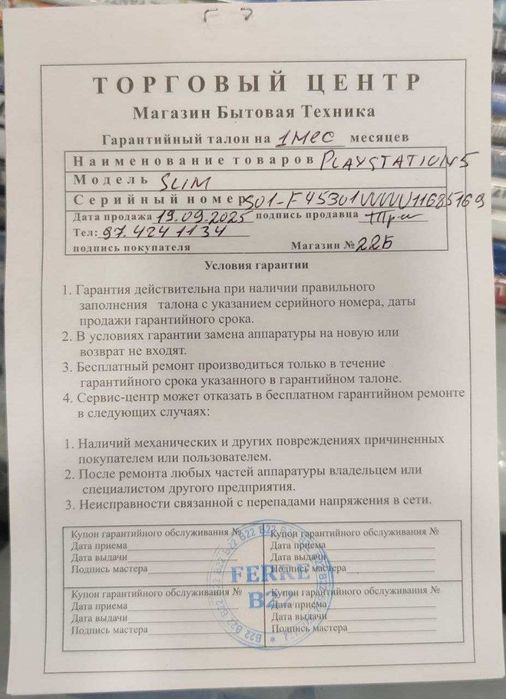 ТОРГОВЫЙ ЦЕНТР
Магазин Бытовая Техника
Гарантийный талон на 1 мес месяцев
Наименование товаров PLAYSTATION 5
Модель SLIM
Серийный номер S01-F45301WWW11685169
Дата продажа 19.09.2025 подпись продавца
Тел: 97.424 1134
подпись покупателя Магазин № 22Б
Условия гарантии
1. Гарантия действительна при наличии правильного
заполнения талона с указанием серийного номера, даты
продажи гарантийного срока.
2. В условиях гарантии замена аппаратуры на новую или
возврат не входят.
3. Бесплатный ремонт производиться только в течение
гарантийного срока указанного в гарантийном талоне.
4. Сервис-центр может отказать в бесплатном гарантийном ремонте
в следующих случаях:
1. Наличий механических и других повреждениях причиненных
покупателем или пользователем.
2. После ремонта любых частей аппаратуры владельцем или
специалистом другого предприятия.
3. Неисправности связанной с перепадами напряжения в сети.
Купон гарантийного обслуживания № Купон гарантийного обслуживания №
Дата приема Дата приема
Дата выдачи Дата выдачи
Подпись мастера Подпись мастера
FERRE
B22
Купон гарантийного обслуживания № Купон гарантийного обслуживания №
Дата приема Дата приема
Дата выдачи Дата выдачи
Подпись мастера Подпись мастера